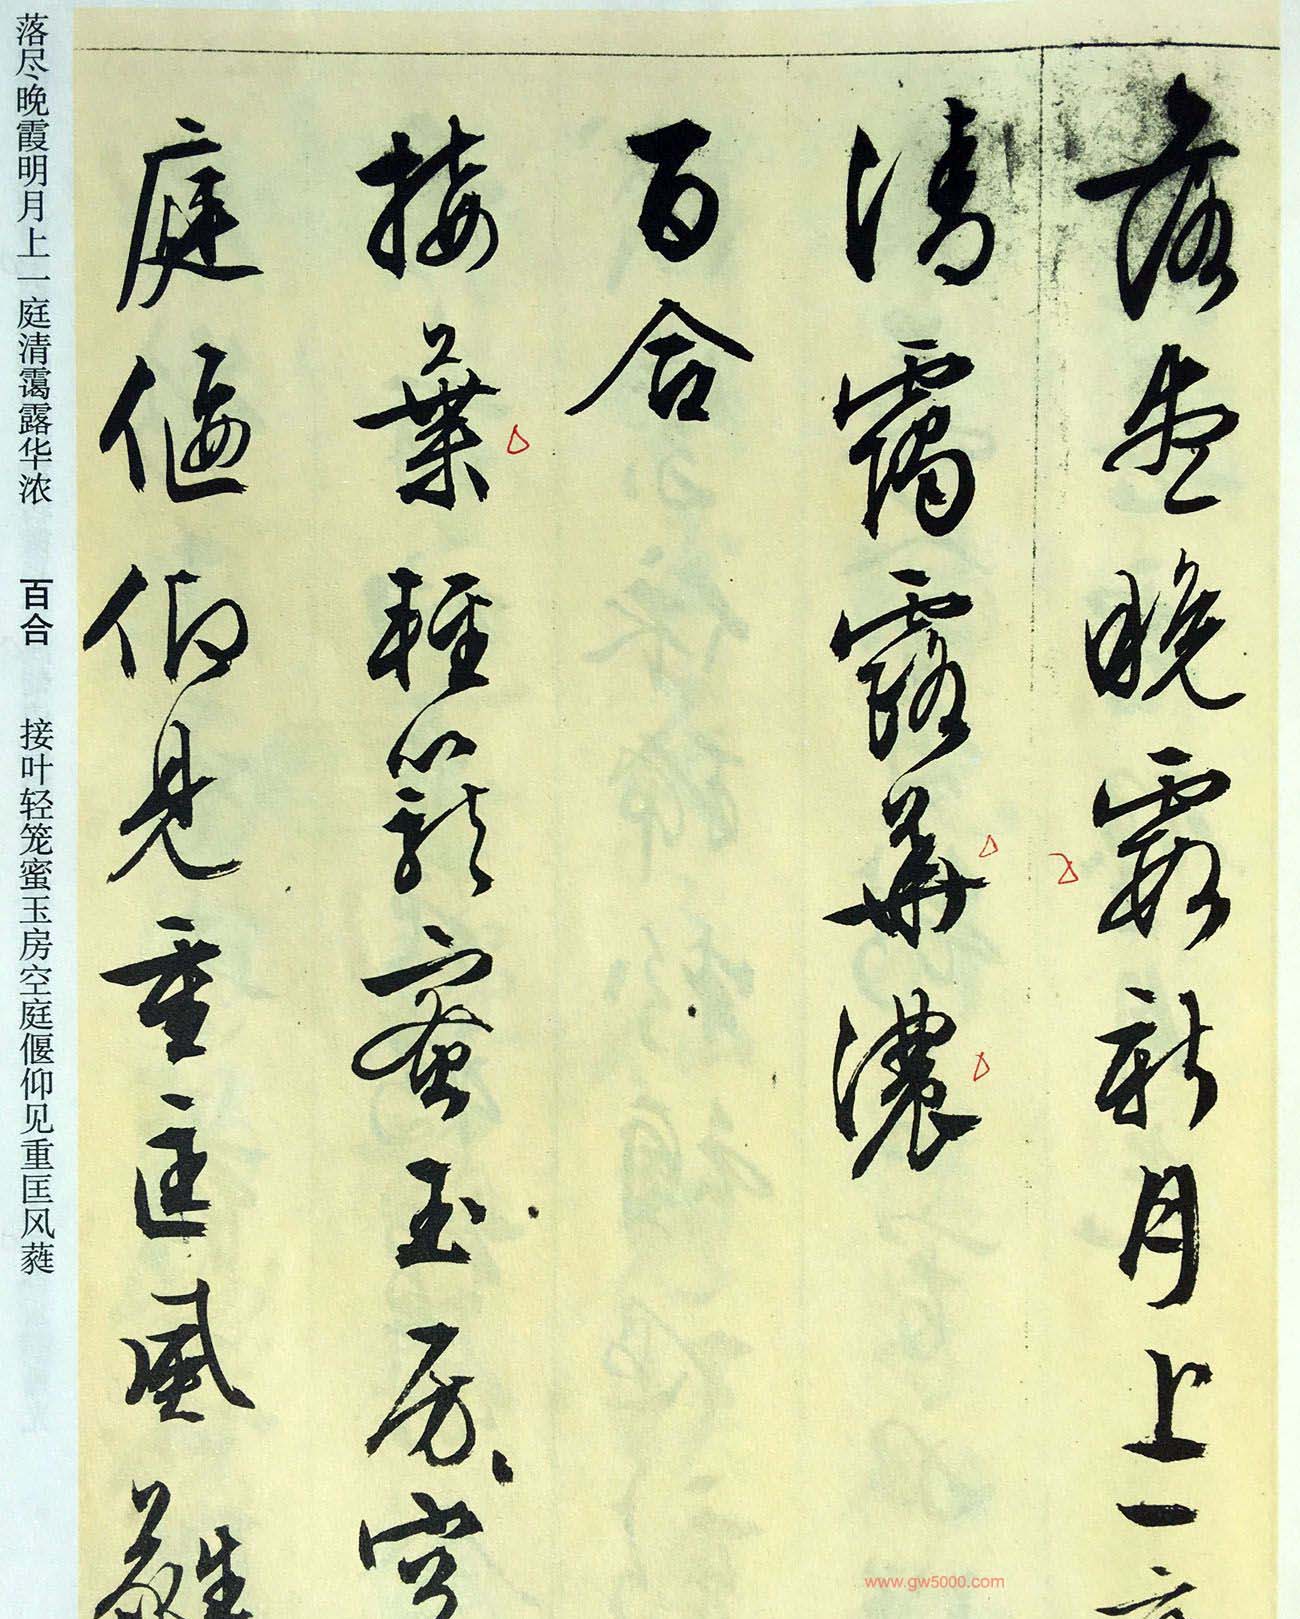 落盡晚霞新月上一
清靄露華濃
百合
接葉輕籠蜜玉房空
庭偃仰見重匡風蕤
落尽晚霞明月上一庭清霭露华浓 百合 接叶轻笼蜜玉房空庭偃仰见重匡风蕤
www.gw5000.com